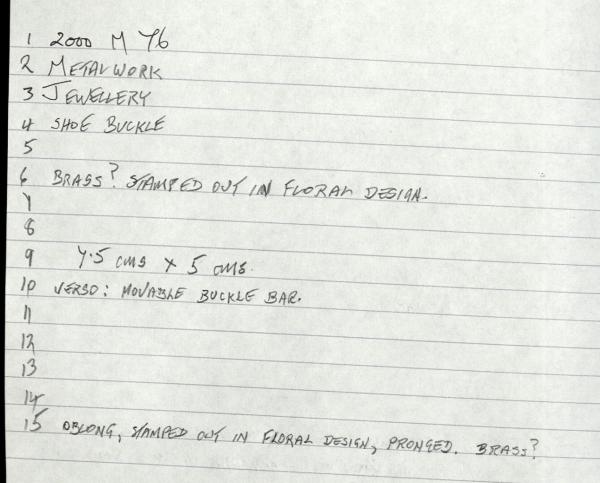 1 2000 M 76
2 METALWORK
3 JEWELLERY
4 SHOE BUCKLE
5
6 BRASS? STAMPED OUT IN FLORAL DESIGN.
7
8
9 7.5 cms x 5 cms.
10 VERSO: MOVABLE BUCKLE BAR.
11
12
13
14
15 OBLONG, STAMPED OUT IN FLORAL DESIGN, PRONGED. BRASS?